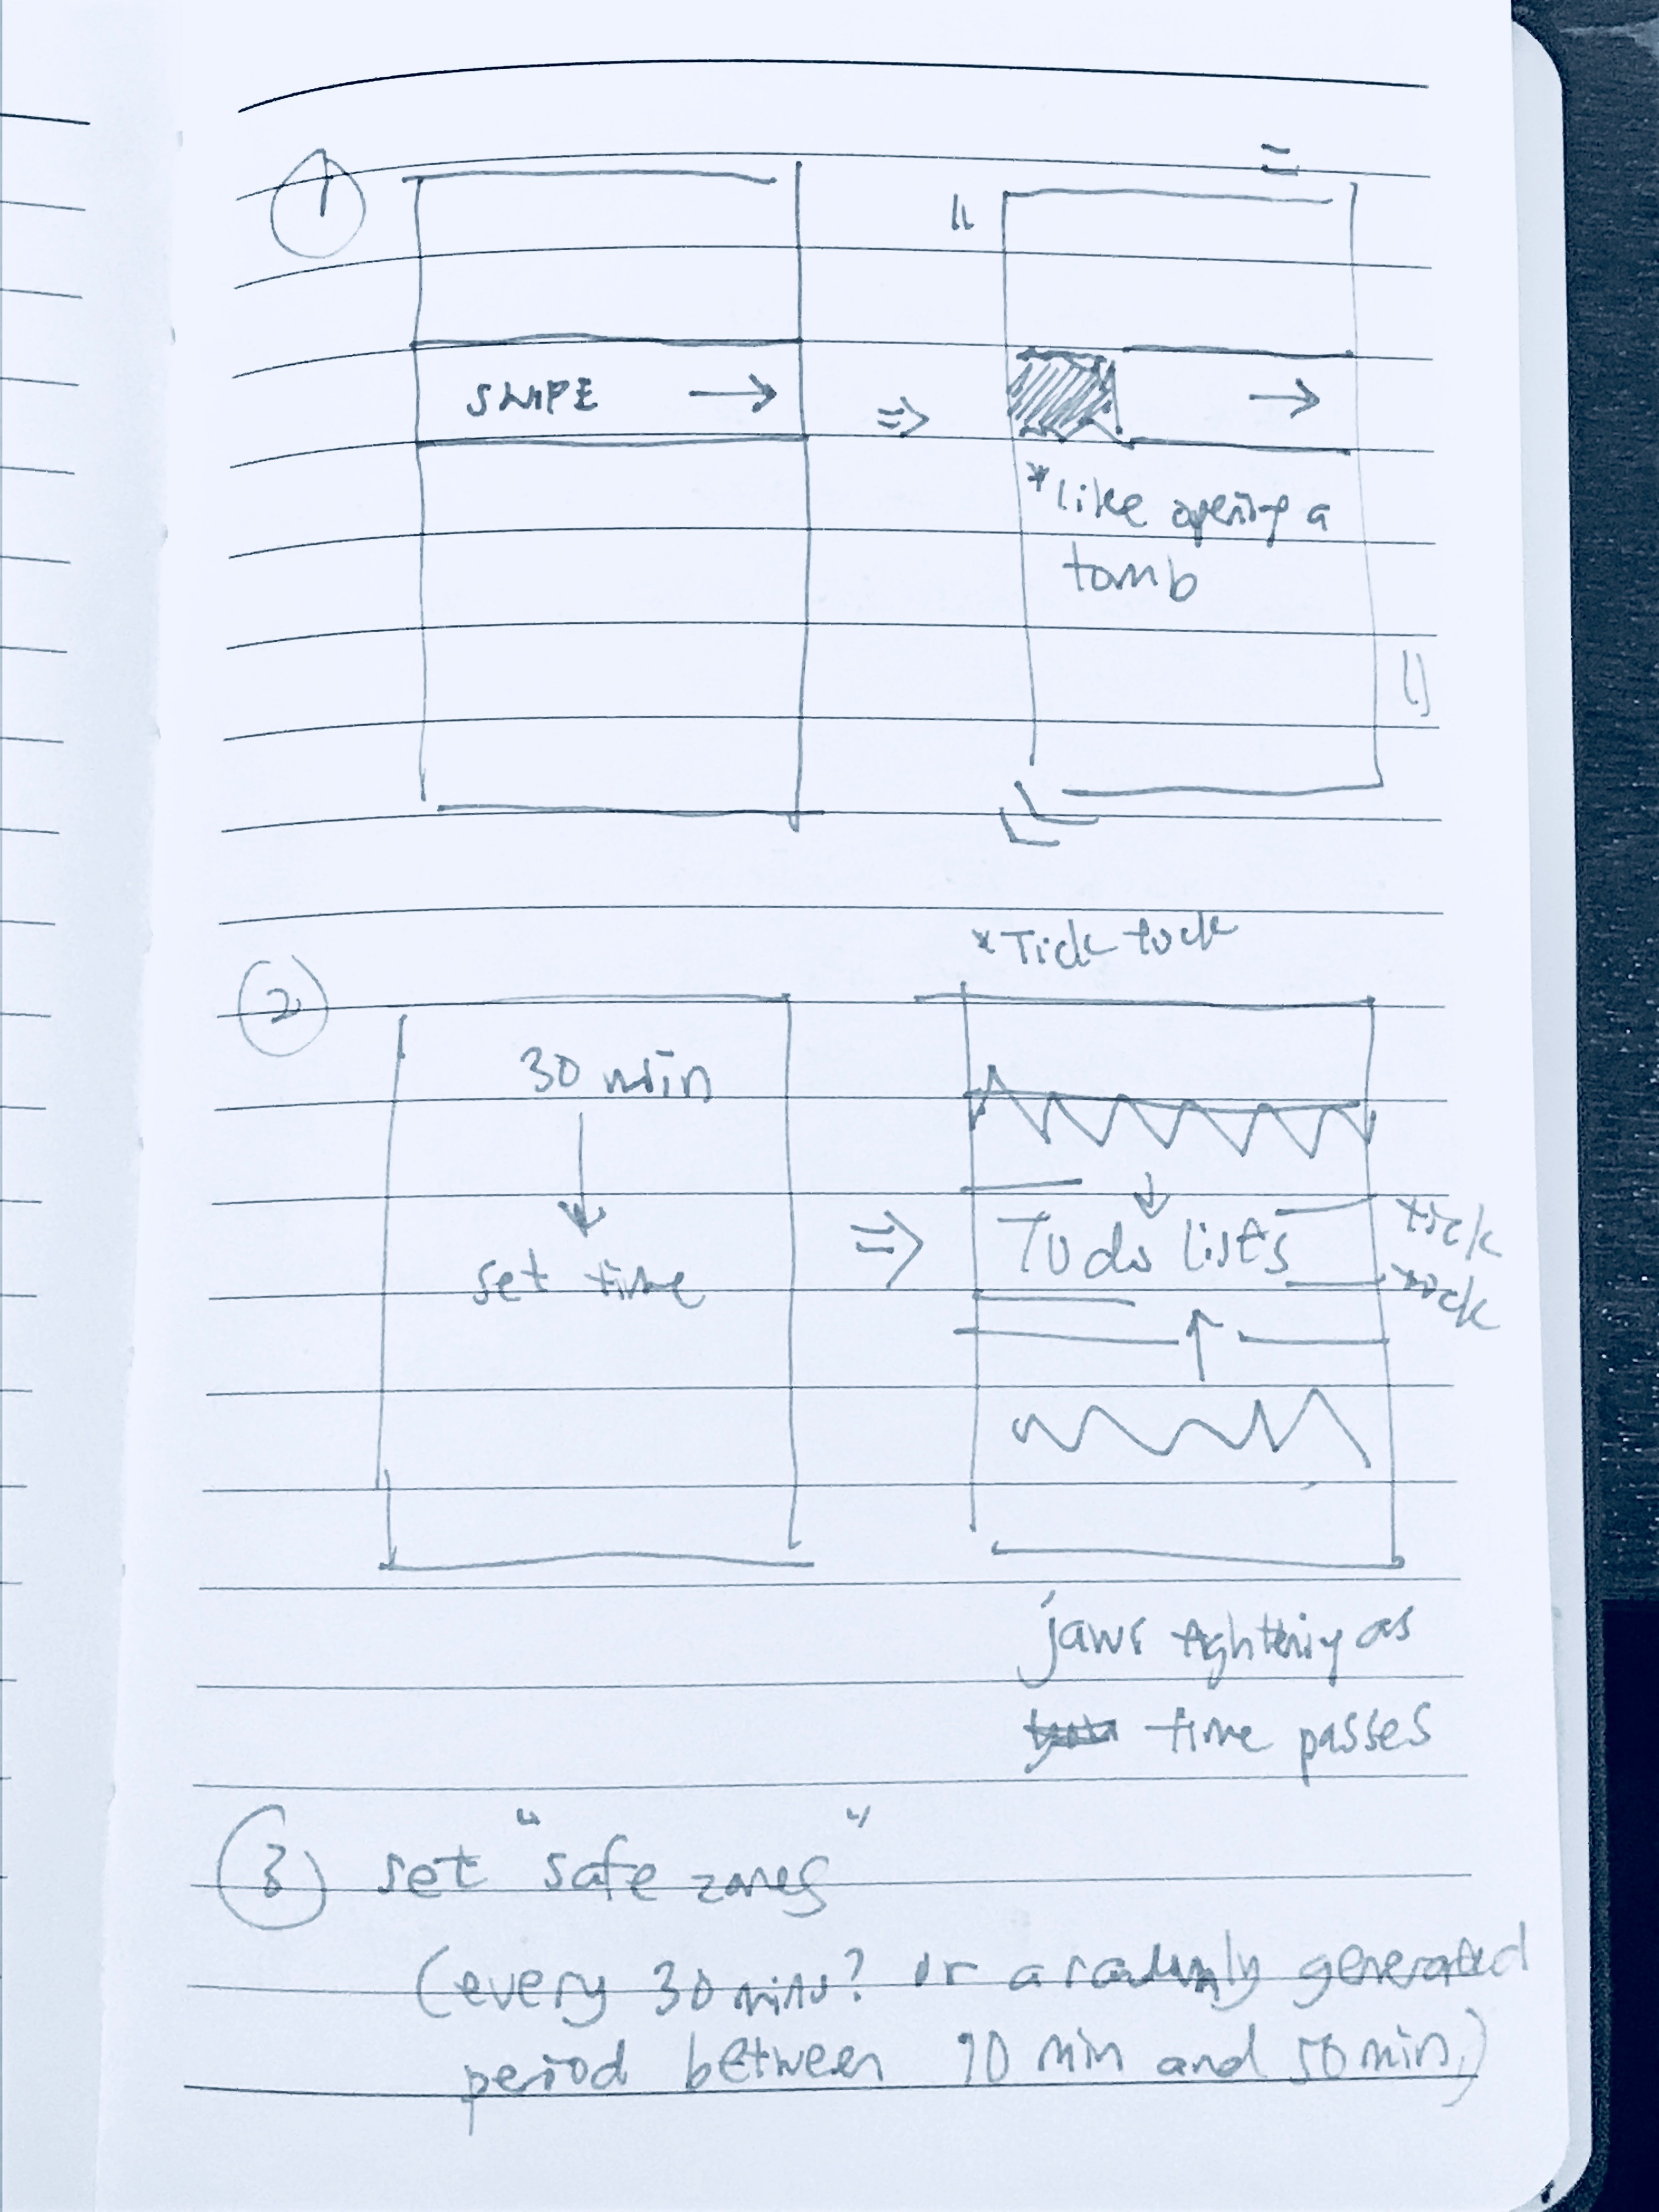 1
SWIPE →
⇒
→
*like opening a
tomb
2
*Tick tock
30 min
↓
set time
⇒
↓
To do lists
↑
tick
tock
jaws tightening as
time passes
3 set "safe zones"
(every 30 mins? or a randomly generated
period between 10 min and 50 min)